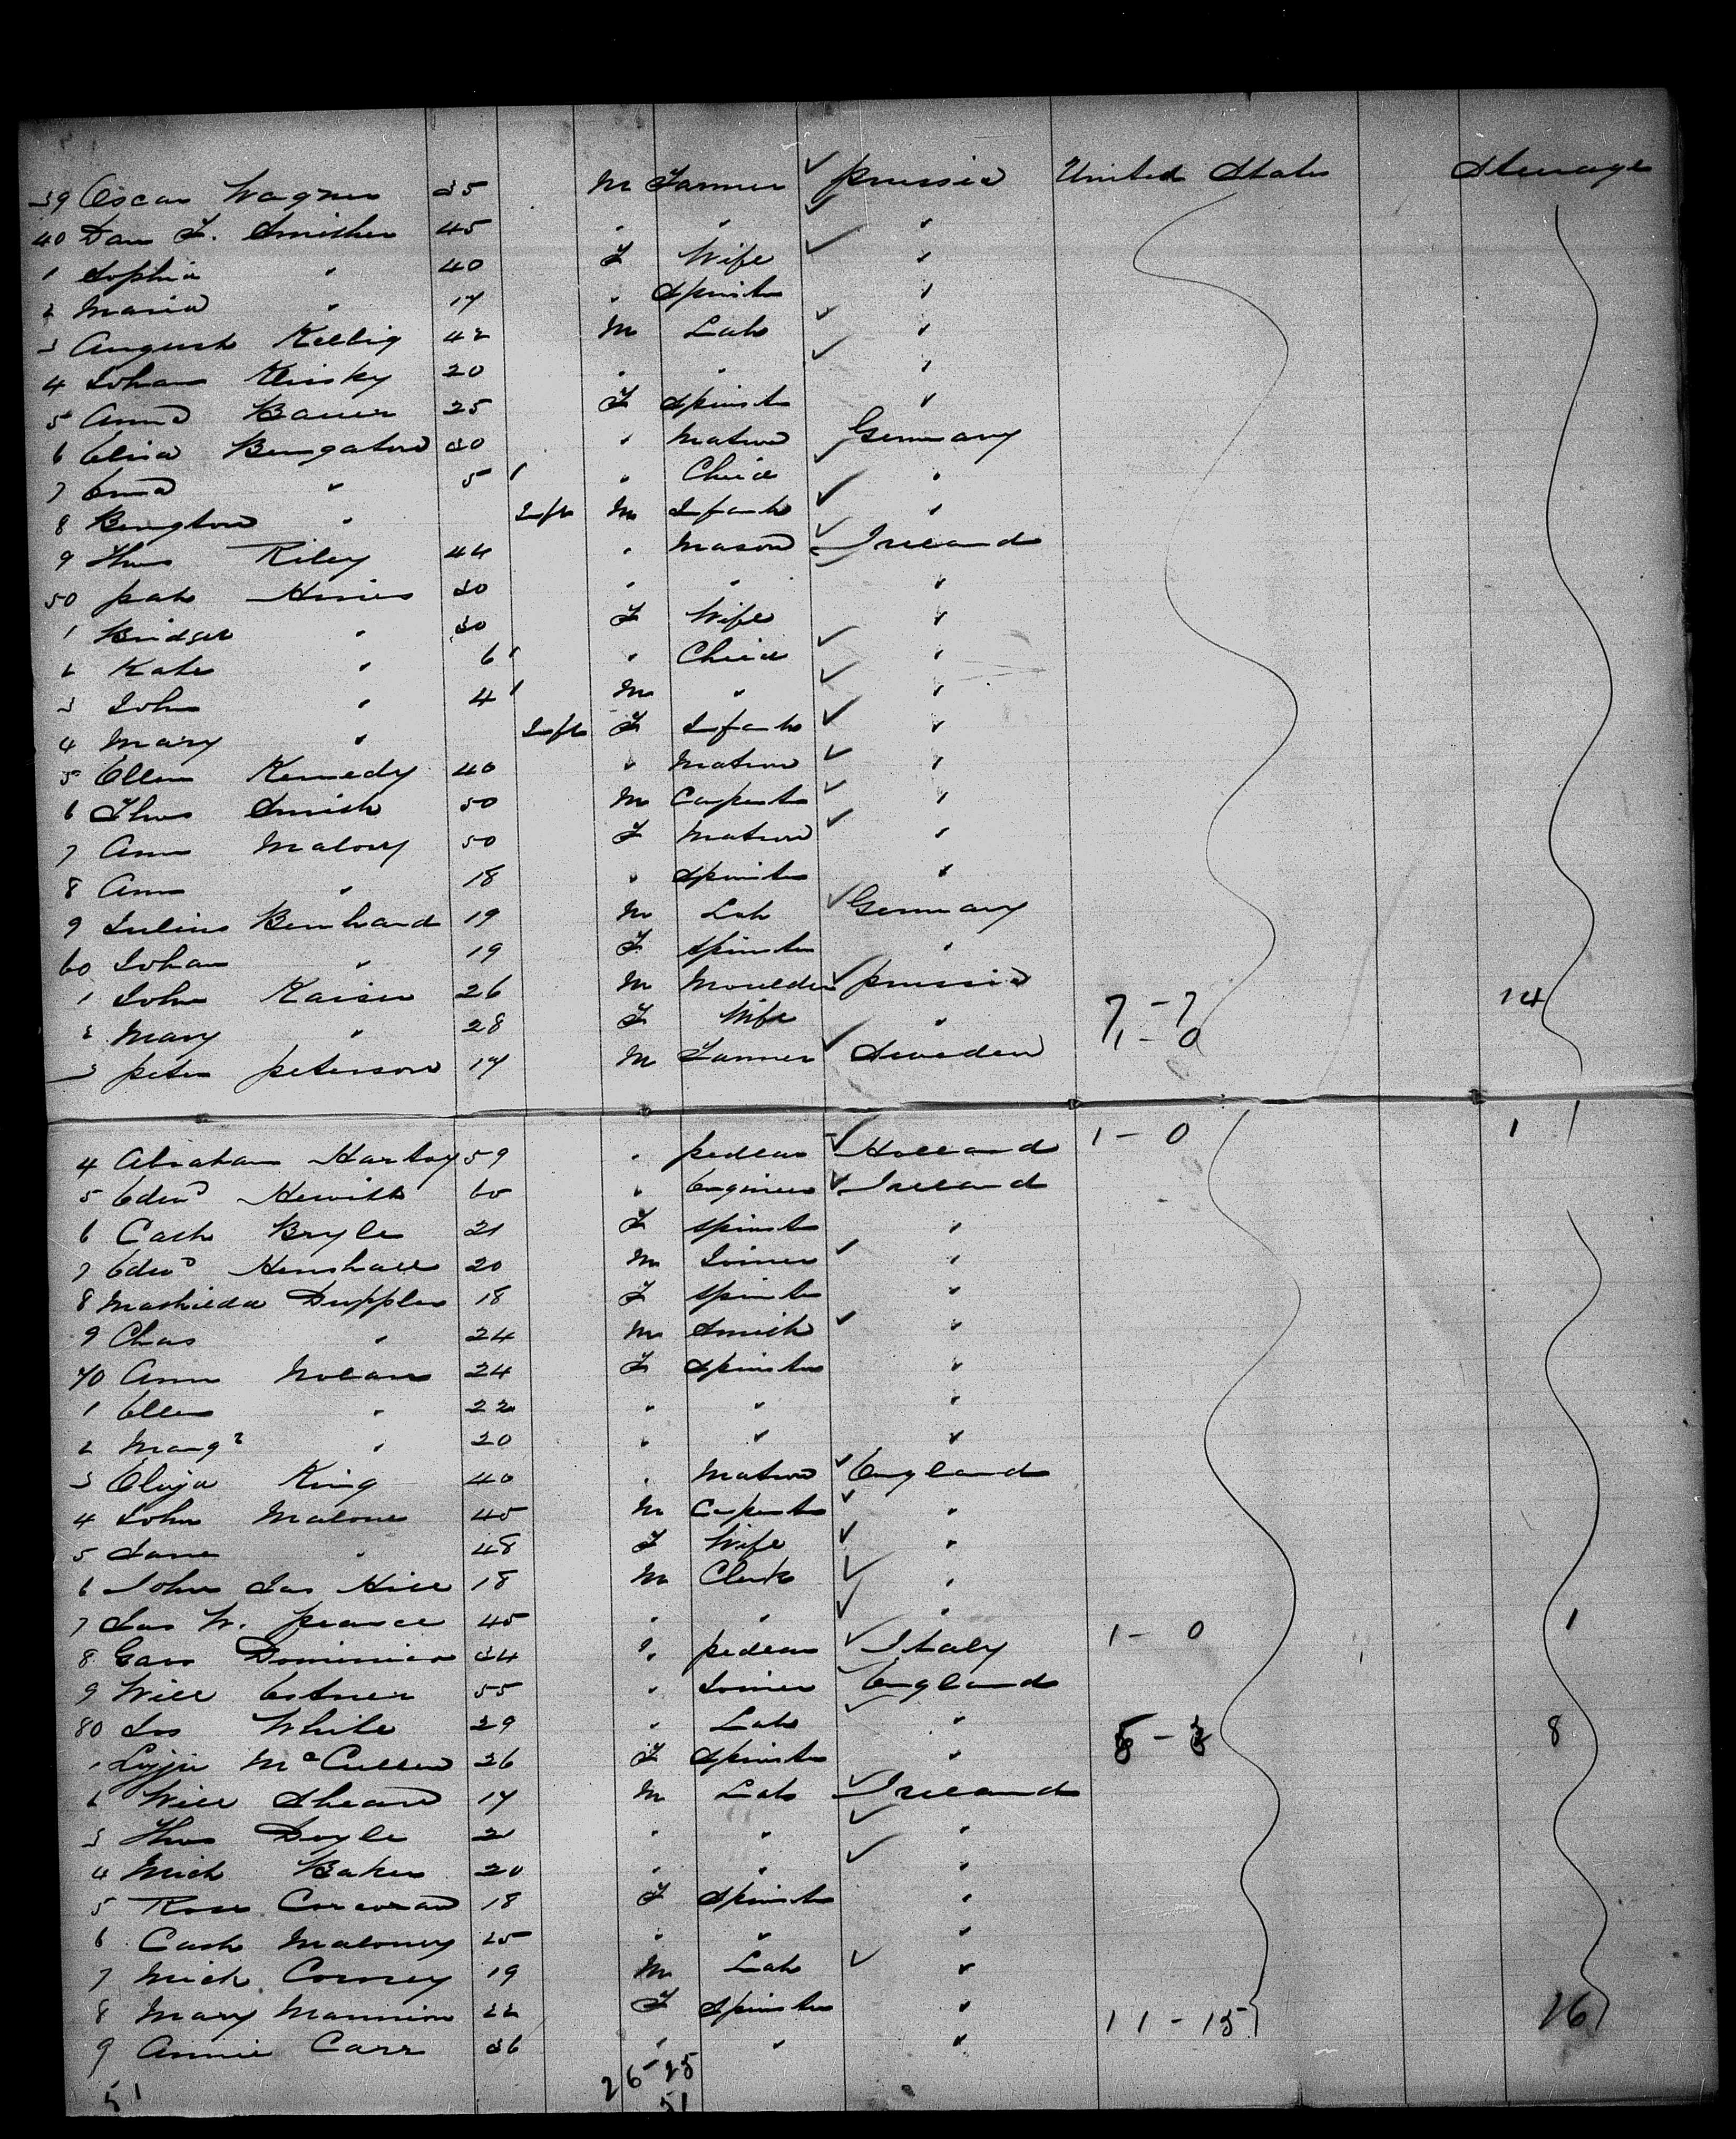 39 Oscar Wagner 35 M Farmer ✓ Prussia United States Steerage
40 Dan F. Smither 45 " " ✓ "
1 Sophia " 40 F Wife ✓ "
2 Maria " 17 " Spinster "
3 August Kelbig 42 M Lab ✓ "
4 Johan Klinsky 20 " " ✓ "
5 Anna Bauer 25 F Spinster "
6 Elisa 30 " Matron Germany
7 " 5 " Child ✓ "
8 " Inft M Infant ✓ "
9 Thos Riley 44 " Mason ✓ Ireland
50 Pat Hines 30 " " "
1 Bridget " 30 F Wife "
2 Kate " 6 " Child ✓ "
3 John " 4 M " ✓ "
4 Mary " Inft F Infant ✓ "
5 Ellen Kennedy 40 " Matron ✓ "
6 Thos Smith 50 M Carpenter ✓ "
7 Ann Malony 50 F Matron ✓ "
8 Ann " 18 " Spinster "
9 Julius Bernhard 19 M Lab ✓ Germany
60 Johan " 19 F Spinster "
1 John Kaiser 26 M Moulder ✓ Prussia
2 Mary " 28 F Wife " 7-7 14
3 Peter Peterson 17 M Farmer ✓ Sweden 1-0
4 Abraham Hartog 59 " Pedlar ✓ Holland 1-0 1
5 Edwd Hewitt 60 " Engineer ✓ Ireland
6 Cath Bryle 21 F Spinster "
7 Edwd Henshall 20 M Joiner ✓ "
8 Mathilda Duppler 18 F Spinster "
9 Chas " 24 M Smith ✓ "
70 Ann Nolan 24 F Spinster "
1 Ellen " 22 " " "
2 Margt " 20 " " "
3 Eliza King 40 " Matron ✓ England
4 John Malone 45 M Carpenter ✓ "
5 Jane " 48 F Wife ✓ "
6 John Jas Hill 18 M Clerk ✓ "
7 Jas W. Pearce 45 " " ✓ "
8 Dominico 34 " Pedlar ✓ Italy 1-0 1
9 Will 55 " Joiner ✓ England
80 Jos White 29 " Lab ✓ " 8
1 Lizzie McCullen 26 F Spinster "
2 Will 17 M Lab ✓ Ireland
3 Thos Doyle 21 " " ✓ "
4 Mich Baker 20 " " ✓ "
5 Rose Corcoran 18 F Spinster "
6 Cath Maloney 25 " " "
7 Mich Conney 19 M Lab ✓ "
8 Mary Mannion 22 F Spinster "
9 Annie Carr 36 " " " 11-15 26
51 26-25
51